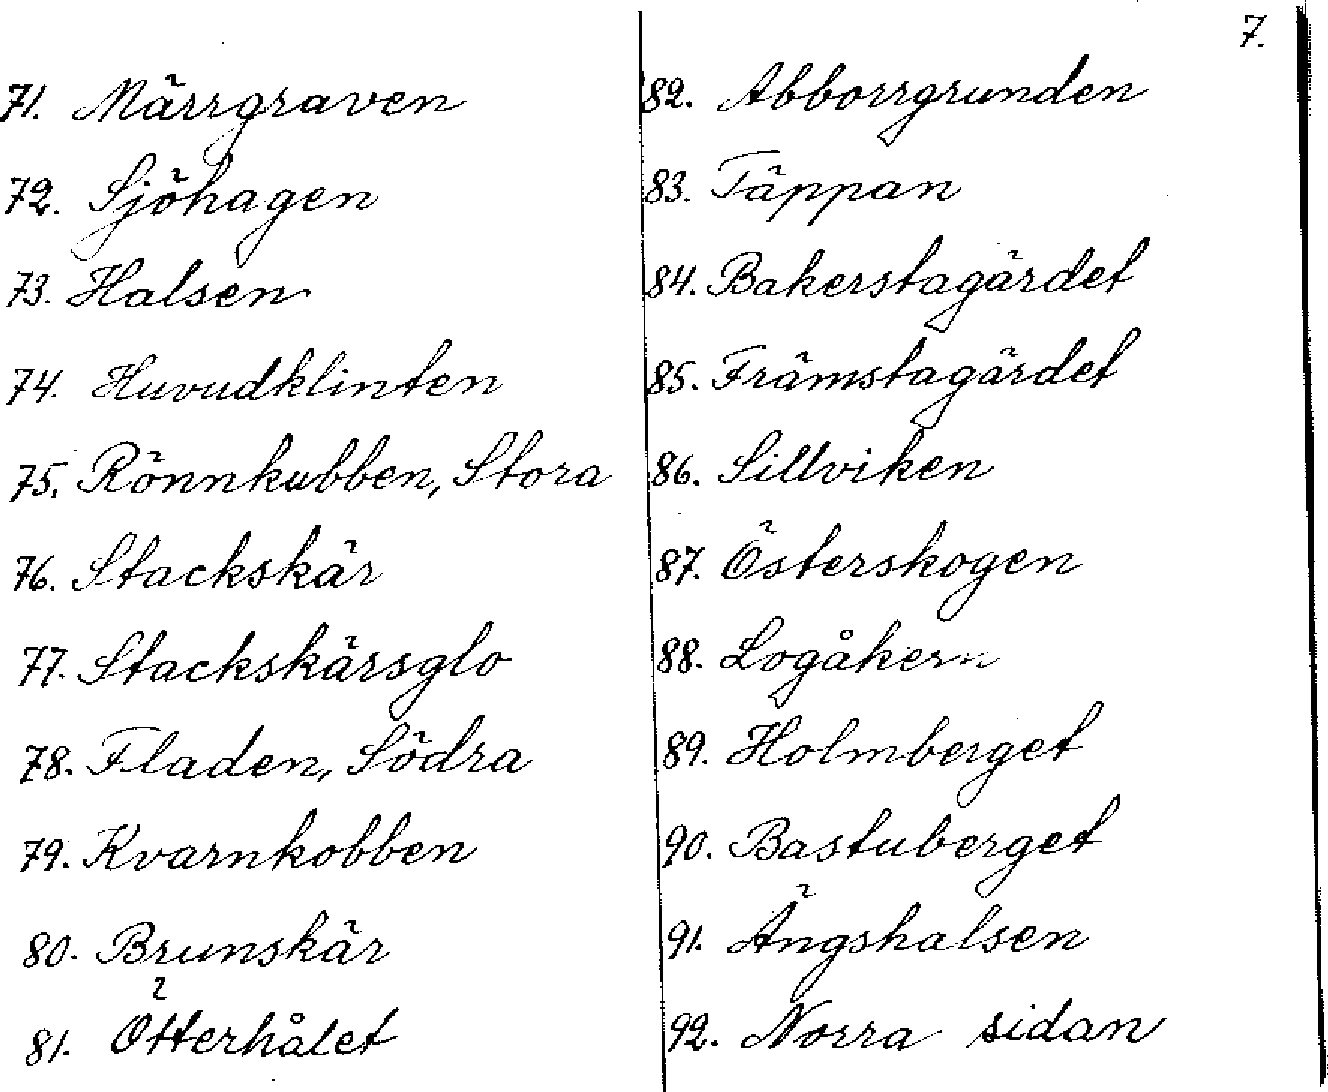 7.
71. Märrgraven
72. Sjöhagen
73. Halsen
74. Huvudklinten
75. Rönnkubben, Stora
76. Stackskär
77. Stackskärsglo
78. Fladen, Södra
79. Kvarnkobben
80. Brunskär
81. Ötterhålet
82. Abborrgrunden
83. Täppan
84. Bakerstagärdet
85. Främstagärdet
86. Sillviken
87. Österskogen
88. Logåkern
89. Holmberget
90. Bastuberget
91. Ängshalsen
92. Norra sidan